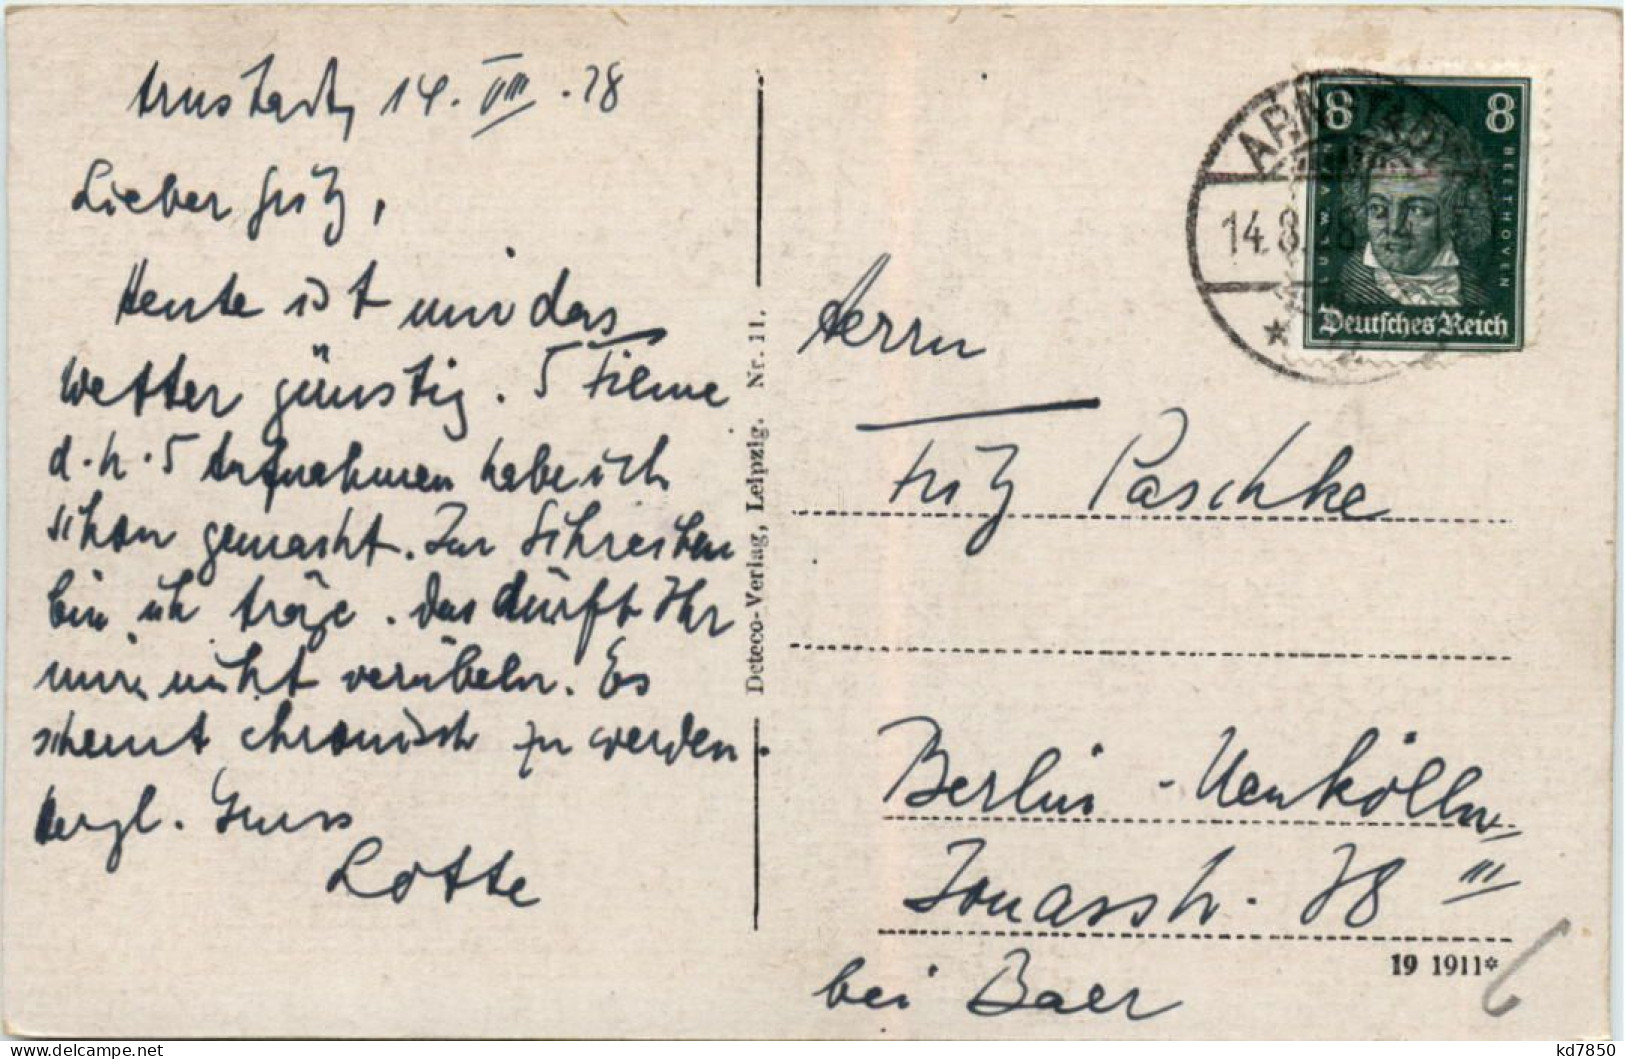 Arnstadt, 14. VIII. 28
Lieber Fritz,
Heute ist mir das
Wetter günstig. 5 Filme
d. h. 5 Aufnahmen habe ich
schon gemacht. Zum Schreiben
bin ich träge. Das dürft Ihr
mir nicht verübeln. Es
scheint chronisch zu werden.
Herzl. Gruss
Lotte
Deteco-Verlag, Leipzig. Nr. 11.
ARNSTADT
14.8.28.
8 8
LUDW. VAN BEETHOVEN
Deutsches Reich
Herrn
Fritz Paschke
Berlin-Neukölln
Jonasstr. 28 III
bei Baer
19 1911*
6
kd7850